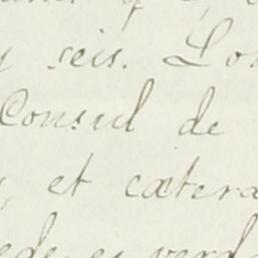 seis. Lo
Consul de
et cætera
ede es verd